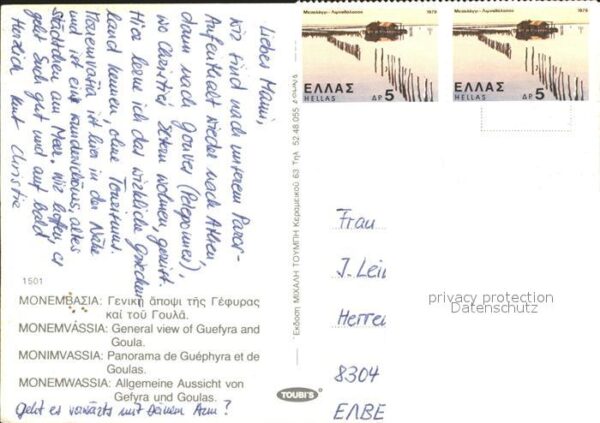 Lieber Manni,
wir sind nach unserem Paros-
Aufenthalt wieder nach Athen,
dann nach (Peloponnes),
wo Christine's Eltern wohnen, gereist.
Hier lerne ich das wirkliche Griechen-
land kennen, ohne Tourismus.
Monemvasia ist hier in der Nähe
und ist ein wunderschönes, altes
Städtchen am Meer. Wir hoffen, es
geht Euch gut und auf bald
Herzlich Christine
1501
ΜΟΝΕΜΒΑΣΙΑ: Γενική ἄποψι τῆς Γέφυρας
καί τοῦ Γουλᾶ.
MONEMVÁSSIA: General view of Guefyra and
Goula.
MONIMVASSIA: Panorama de Guéphyra et de
Goulas.
MONEMWASSIA: Allgemeine Aussicht von
Gefyra und Goulas.
geht es vorwärts mit Deinem Arm?
Ἔκδοση ΜΙΧΑΛΗ ΤΟΥΜΠΗ Κεραμεικοῦ 63 Τηλ. 52.48.055 ΑΘΗΝΑ
TOUBI'S
Μεσολόγγι - Λιμνοθάλασσα 1979
ΕΛΛΑΣ
HELLAS ΔΡ 5
Μεσολόγγι - Λιμνοθάλασσα 1979
ΕΛΛΑΣ
HELLAS ΔΡ 5
Frau
J. Lein
Herren
8304
ΕΛΒΕ
privacy protection
Datenschutz